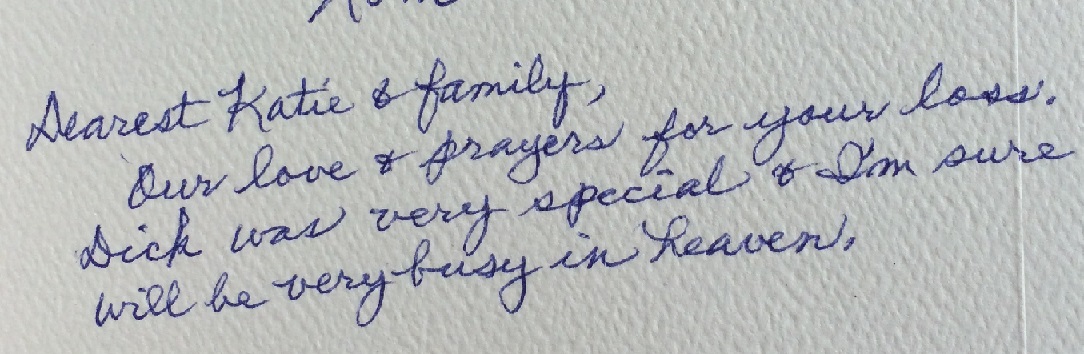 Dearest Katie & family,
Our love & prayers for your loss.
Dick was very special & I'm sure
will be very busy in heaven.